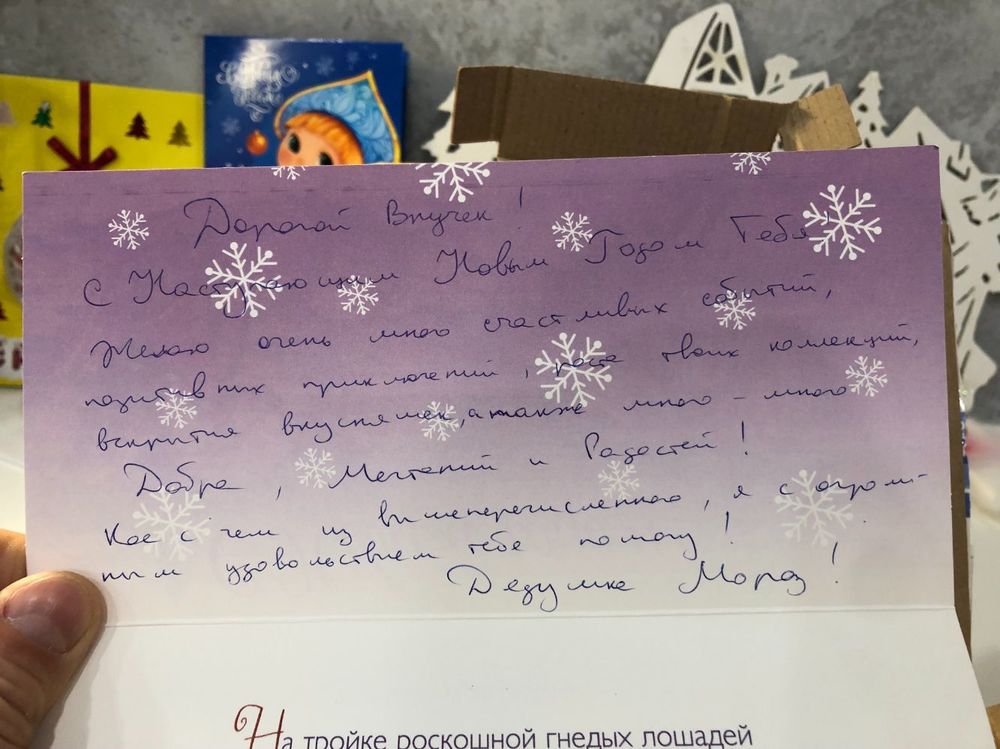 Дорогой Внучек!
С Наступающим Новым Годом Тебя!
Желаю очень много счастливых событий,
позитивных приключений, роста твоих коллекций,
вскрытия вкусняшек, а также много-много
Добра, Мечтаний и Радостей!
Кое с чем из вышеперечисленного, я с огром-
ным удовольствием тебе помогу!
Дедушка Мороз!
На тройке роскошной гнедых лошадей